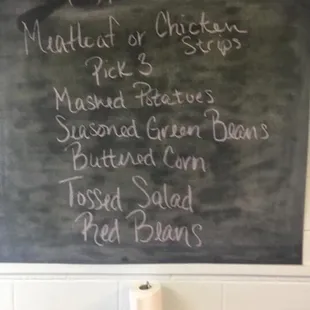 Meatloaf or Chicken
Strips
Pick 3
Mashed Potatoes
Seasoned Green Beans
Buttered Corn
Tossed Salad
Red Beans